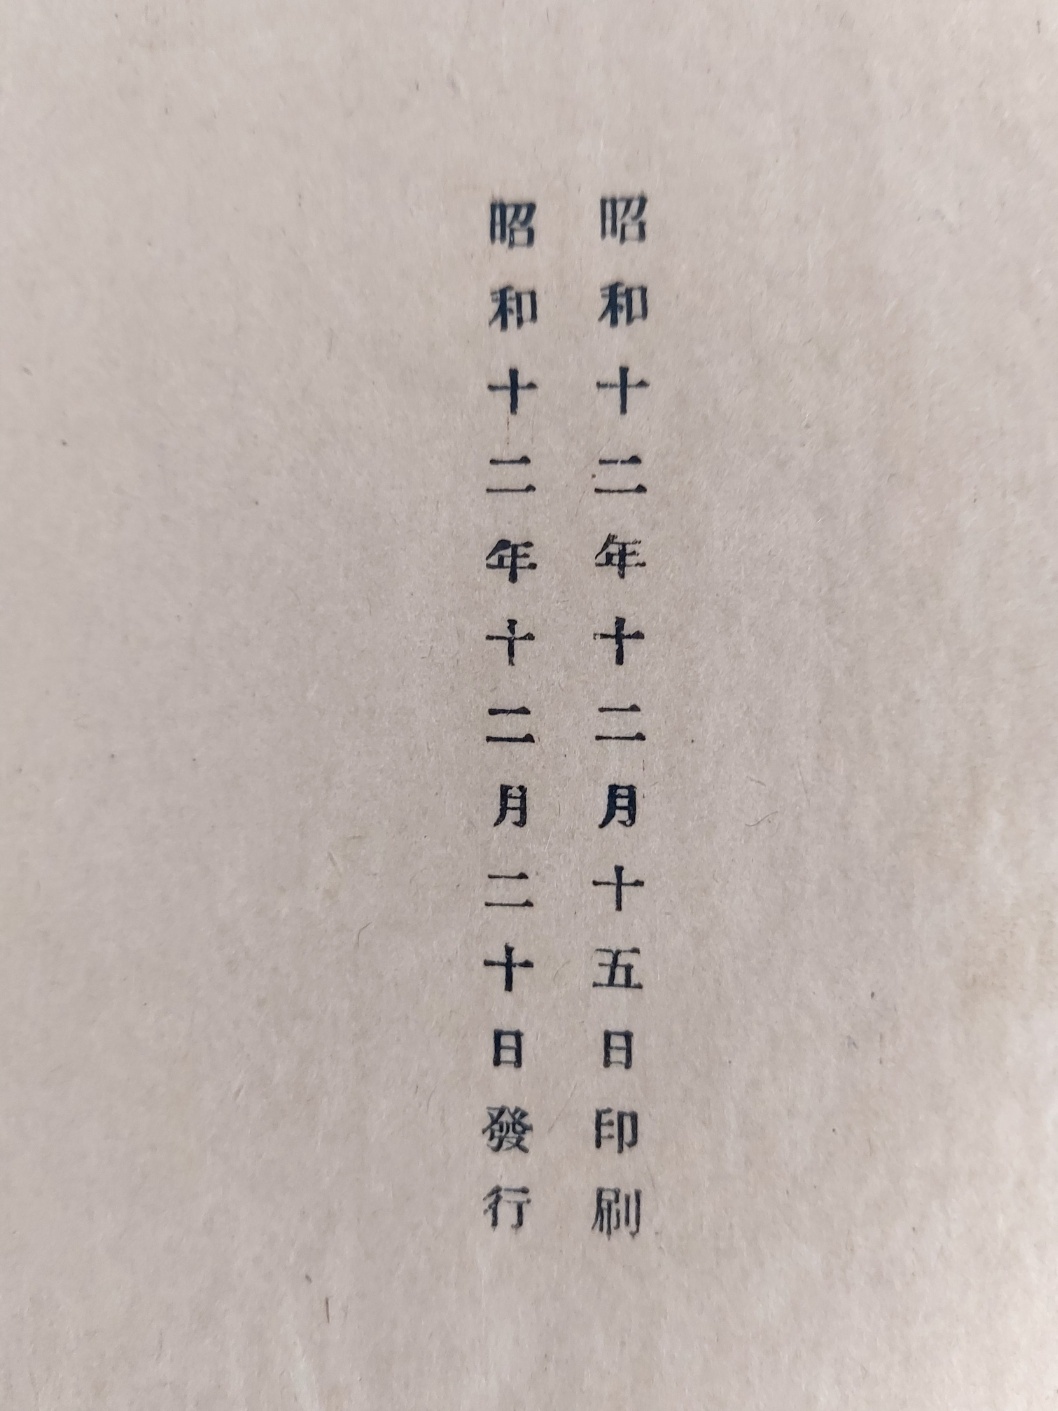 昭和十二年十二月十五日印刷
昭和十二年十二月二十日發行